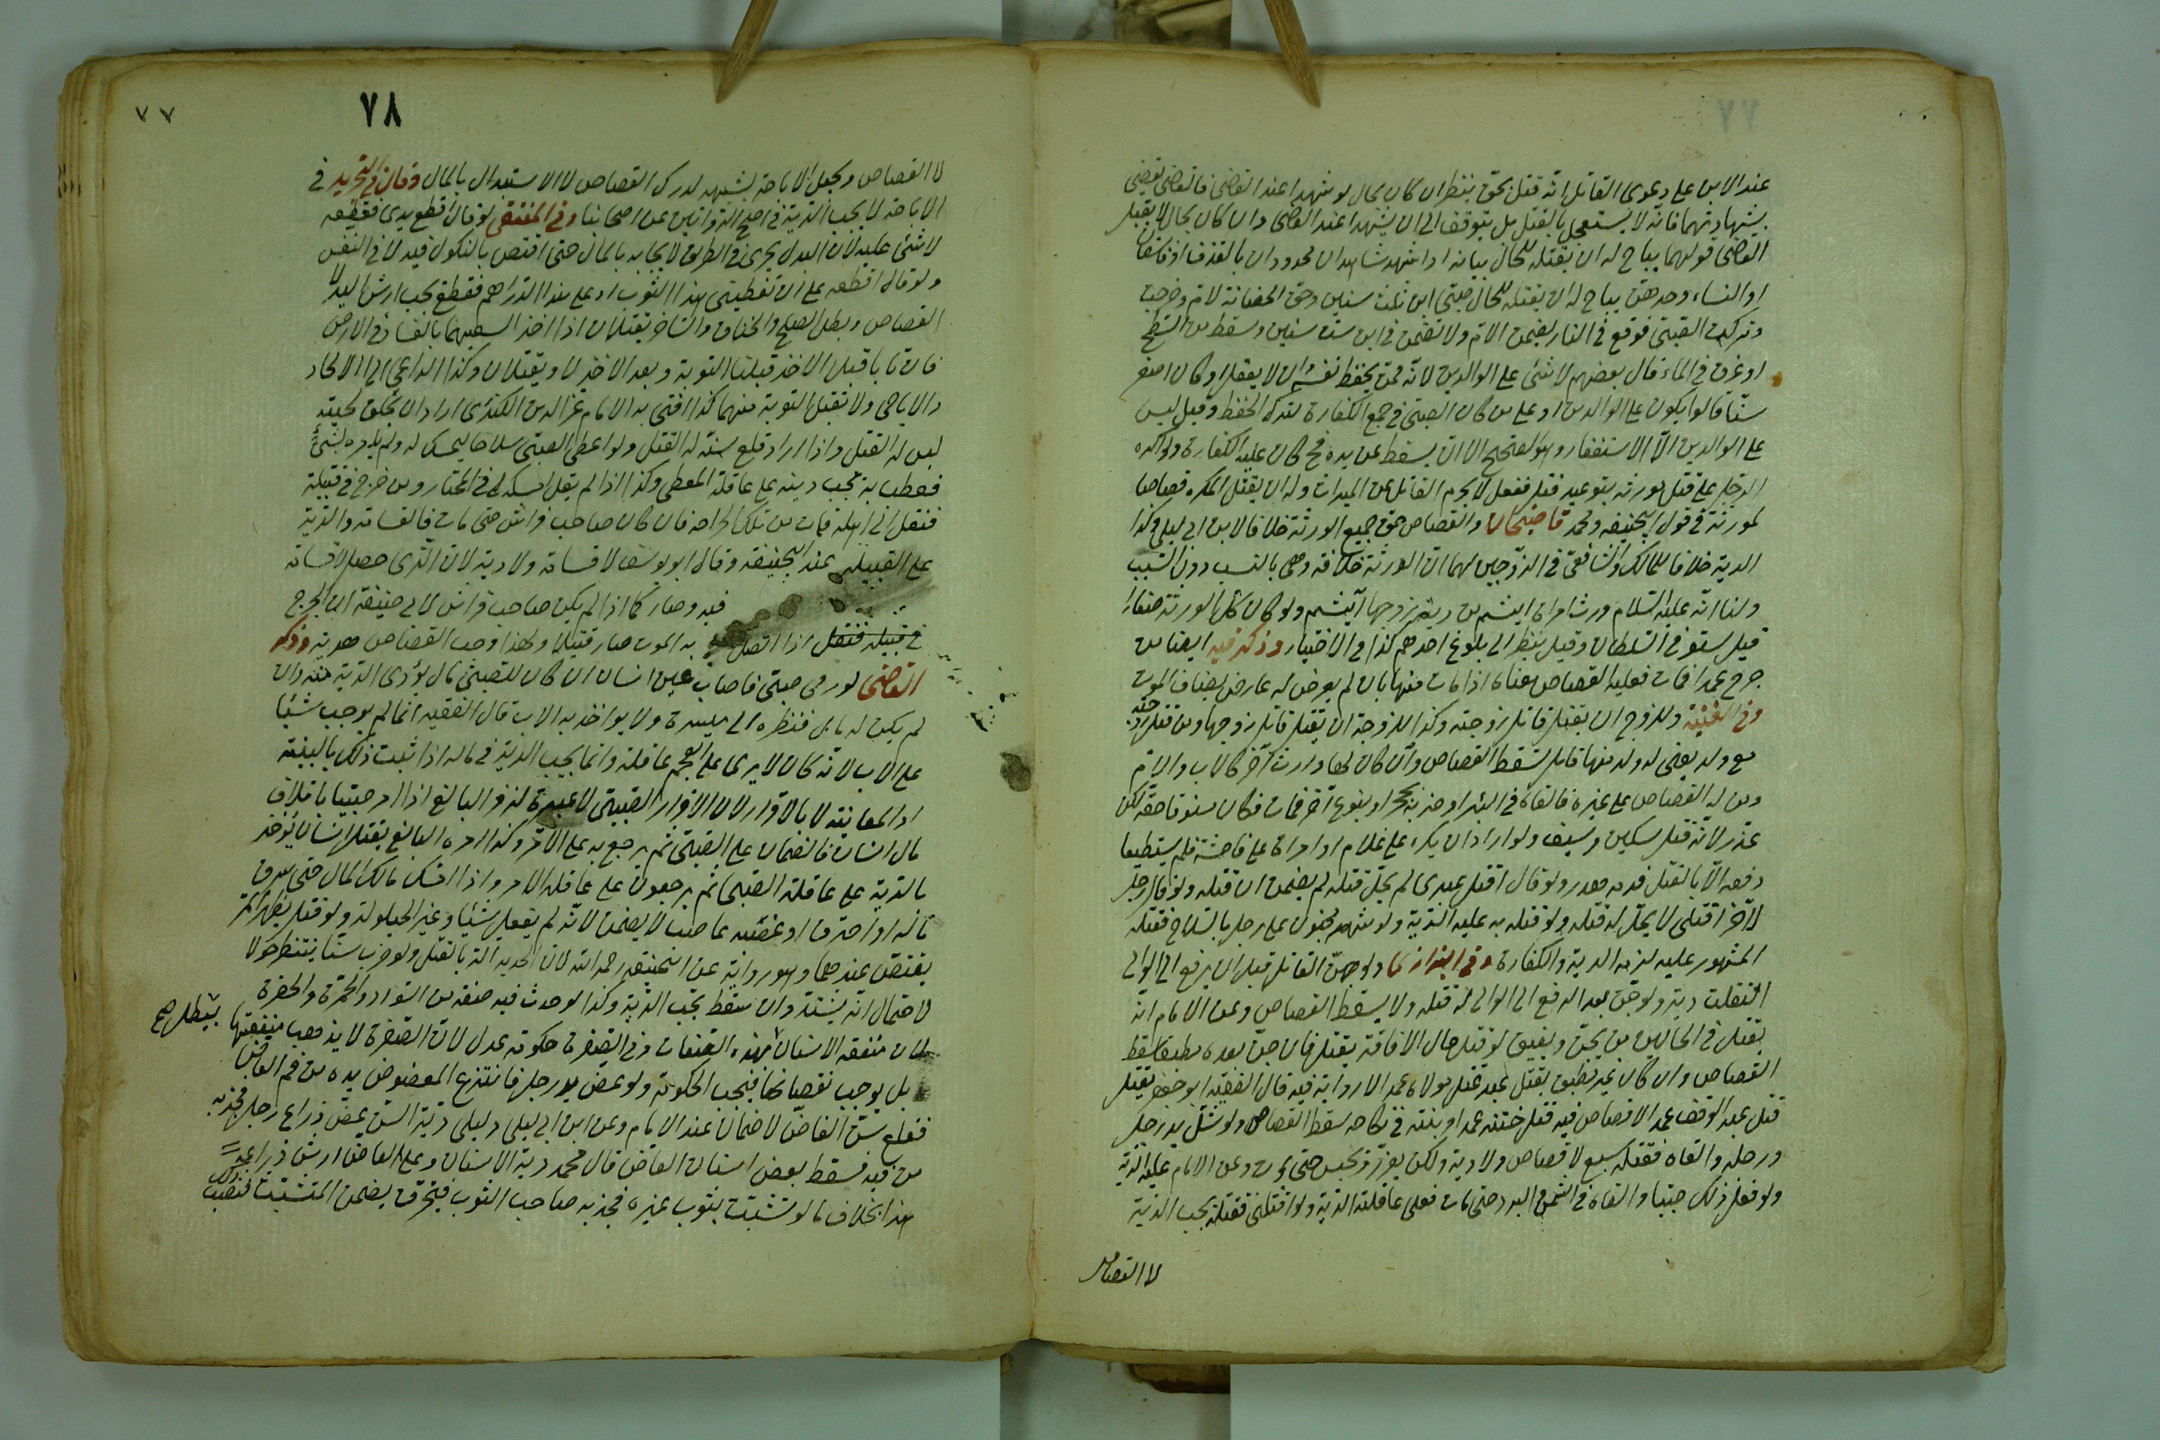 عند الابن على دعوى القاتل انه قتل بحق ينتظر ان كان بحال لو شهدا عند القاضى فالقاضى يقضى
بشهادتهما فانه لا يستعجل بالقتل بل يتوقف الى ان يشهدا عند القاضى وان كان بحال لا يقبل
القاضى قولهما يباح له ان يقتله للحال بيانه اذا شهد شاهدان محدودان بالقذف او فاسقان
او النساء وحدهن يباح له ان يقتله للحال صبى ابن ثلث سنين وحق الحضانة لام وخرجت
وتركت الصبى فوقع فى النار يضمن الام ولا تضمن فى ابن ست سنين وسقط من السطح
او غرق فى الماء قال بعضهم لا شئ على الوالدين لانه ممن يحفظ نفسه وان لا يعقل او كان اصغر
سنا قالوا يكون على الوالدين او على من كان الصبى فى حجره الكفارة لترك الحفظ وقيل ليس
على الوالدين الا الاستغفار وهو الصحيح الا ان يسقط من يده فح كان عليه الكفارة ولو اكره
الرجل على قتل مورثه بتوعيد قتل ففعل لا يحرم القاتل من الميراث وله ان يقتل المكره قصاصا
لمورثه فى قول ابيحنيفه ومحمد قاضيخان والقصاص حق جميع الورثة خلافا لابن ابى ليلى وكذا
الدية خلافا لمالك والشافعى فى الزوجين لهما ان الورثة خلافه وهى بالنسب دون السبب
ولنا انه عليه السلام ورث امراة اشيم من دية زوجها اشيم ولو كان كل الورثة صغارا
قيل يستوفى السلطان وقيل ينتظر الى بلوغ احدهم كذا فى الاختيار وذكر فيه ايضا من
جرح عمدا فمات فعليه القصاص معناه اذا مات منها بان لم يعرض له عارض يضاف الموت
وفى القنية وللزوج ان يقتل قاتل زوجته وكذا للزوجة ان يقتل قاتل زوجها ومن قتل زوجته
مع ولد يعنى له ولد منها قاتل سقط القصاص وان كان لها وارث آخر كالاب والام
ومن له القصاص على غيره فالقاه فى البئر او ضربه بحجر او بنوع آخر فمات فكان مستوفا حقه لكن
عذر لانه قتل بسكين وسيف ولو اراد ان يكره على غلام او امراة على فاحشة فلم يستطيعا
دفعه الا بالقتل فدمه هدر ولو قال اقتل عبدى لم يحل قتله لم يضمن ان قتله ولو قال رجل
لآخر اقتلى لا يحل له قتله ولو قتله به عليه الدية ولو شهر مجنون على رجل بالسلاح فقتله
المشهور عليه لزمه الدية والكفارة وفى البزازيه ولو جن القاتل قبل ان يرفع الى الوالى
انتقلت دية ولو جن بعد الدفع الى الوالى له قتله ولا يسقط القصاص وعن الامام انه
يقتل فى الحالين من يجن ويفيق لو قتل حال الافاقة يقتل فان جن بعده مطبقا سقط
القصاص وان كان غير مطبق يقتل عبد قتل مولاه عمدا لا رواية فيه قال الفقيه ابو جعفر يقتل
قتل عبد الوقف عمدا لا قصاص فيه قتل ختنه عمدا وبنته فى نكاحه سقط القصاص ولو شل يد رجل
ورجله والقاه فقتله سبع لا قصاص ولا دية ولكن يعزر ويحبس حتى يموت وعن الامام عليه الدية
ولو فعل ذلك صبيا والقاه فى الشمس او البرد حتى مات فعلى عاقلته الدية ولو اقتلنى فقتله يجب الدية
لا القصاص
٧٨
٧٧
لا القصاص ويجعل الاباحة لشبهة لدرك القصاص لا الاستبدال بالمال وقال فى التجريد فى
الاباحة لا يجب الدية فى اصح الروايتين عن اصحابنا وفى المنتقى لو قال اقطع يدى فقطعه
لا شئ عليه لان البدل يجرى فى الطرف لا يجابه بالمال حتى اقتص بالنكول فيه لا فى النفس
ولو قال اقطعه على ان تعطينى هذا الثوب او على هذا الدراهم فقطع يجب ارش اليد لا
القصاص وبطل الصلح والخناق والساحر يقتلان اذا اخذ السعيهما بالفساد فى الارض
فان تابا قبل الاخذ قبلنا التوبة وبعد الاخذ لا ويقتلان وكذا الداعى الى الالحاد
والاباحى ولا تقبل التوبة منهما كذا افتى به الامام عز الدين الكندى اراد ان يحلق لحيته
ليس له القتل واذا اراد قلع سنه له القتل ولو اعطى الصبى سلاحا ليمسك له ولم يأمره بشئ
فعطب به يجب دينه على عاقلة المعطى وكذا اذا لم يقل امسكه لى فى المختار ومن جرح فى قبيلة
فنقل الى اهله فمات من تلك الجراحة فان كان صاحب فراش حتى مات فالقسامة والدية
على القبيلة عند ابيحنيفه وقال ابو يوسف لا قسامة ولا دية لان الذى حصل لا قسامة
فيه وصار كما اذا لم يكن صاحب فراش لابى حنيفة ان الجرح
فى قبيله فنقل اذا اتصل به الموت صار قتيلا ولهذا وجب القصاص وذكر
القاضى لو رمى صبى فاصاب عين انسان ان كان للصبى مال يؤدى الدية منه وان
لم يكن له مال فنظرة الى ميسرة ولا يواخذ به الاب قال الفقيه انما لم يوجب شيئا
على الاب لانه كان لا يرى على العجم عاقلة وانما يجب الدية فى ماله اذا ثبت ذلك بالبينة
او المعاينة لا بالاقرار لان الاقرار الصبى لا عبرة
مال انسان فالضمان على الصبى ثم يرجع به على الآمر وكذا امره البالغ بقتل انسان يؤخذ
بالدية على عاقلة الصبى ثم يرجعون على عاقلة الآمر واذا امسك مالك المال حتى سرق
ماله او احترق او غصبه غاصب لا يضمن لانه لم يفعل شيئا وغير الحيلولة ولو قتل
يقتص عندهما وهو رواية عن ابيحنيفه رحمه الله لان الحديد آلة بالقتل ولو ضرب سنا ينتظر حولا
لاحتمال انه يشتد وان سقط يجب الدية وكذا لو حدث فيه صفة من السواد والحمرة والخضرة
لان منفعة الاسنان بهذه الصفات وفى الصفرة حكومة عدل لان الصفرة لا يذهب منفعتها
يبطل صح
بل يوجب نقصانا فيجب الحكومة ولو عض يد رجل فانتزع المعضوض يده من فم العاض
فقلع سن العاض لا ضمان عند الامام وعن ابن ابى ليلى دية السن عض ذراع رجل فجذبه
من فيه فسقط بعض اسنان العاض قال محمد دية الاسنان وعلى العاض ارش ذراعه
هذا بخلاف ما لو تشبث بثوب غيره فجذبه صاحب الثوب فيخرق يضمن المتشبث نصف ذلك